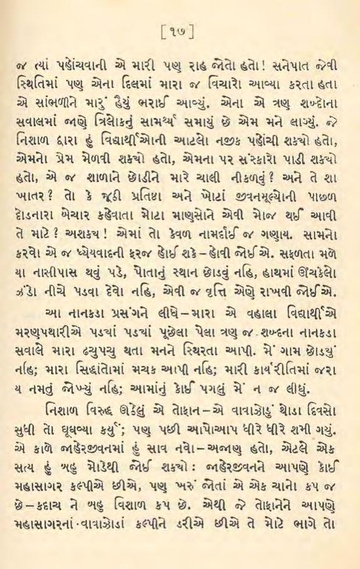 [ ૧૭ ]
જ ત્યાં પહોંચવાની એ મારી પણ રાહ જોતો હતો! સનેપાત જેવી
સ્થિતિમાં પણ એના દિલમાં મારા જ વિચારો આવ્યા કરતા હતા
એ સાંભળીને મારું હૈયું ભરાઈ આવ્યું. એના એ ત્રણ શબ્દોના
સવાલમાં જાણે ત્રિલોકનું સામર્થ્ય સમાયું છે એમ મને લાગ્યું. જે
નિશાળ દ્વારા હું વિદ્યાર્થીઓની આટલો નજીક પહોંચી શક્યો હતો,
એમનો પ્રેમ મેળવી શક્યો હતો, એમના પર સંસ્કારો પાડી શક્યો
હતો, એ જ શાળાને છોડીને મારે ચાલી નીકળવું? અને તે શા
ખાતર? તો કે જૂઠી પ્રતિષ્ઠા અને ખોટાં જીવનમૂલ્યોની પાછળ
દોડનારા બેચાર કહેવાતા મોટા માણસોને એવી મોજ થઈ આવી
તે માટે? અશક્ય! એમાં તો કેવળ નામર્દાઈ જ ગણાય. સામનો
કરવો એ જ ધ્યેયવાદની ફરજ હોઈ શકે – હોવી જોઈએ. સફળતા મળે
યા નાસીપાસ થવું પડે, પોતાનું સ્થાન છોડવું નહિ, હાથમાં ઊંચકેલો
ઝંડો નીચે પડવા દેવો નહિ, એવી જ વૃત્તિ એણે રાખવી જોઈએ.
આ નાનકડા પ્રસંગને લીધે – મારા એ વહાલા વિદ્યાર્થીએ
મરણપથારીએ પડ્યાં પડ્યાં પૂછેલા પેલા ત્રણ જ શબ્દના નાનકડા
સવાલે મારા ઢચુપચુ થતા મનને સ્થિરતા આપી. મેં ગામ છોડ્યું
નહિ; મારા સિદ્ધાંતોમાં મચક આપી નહિ; મારી કાર્યરીતિમાં જરા
ય નમતું જોખ્યું નહિ; આમાંનું કોઈ પગલું મેં ન જ લીધું.
નિશાળ વિરુદ્ધ ઊઠેલું એ તોફાન – એ વાવાઝોડું થોડા દિવસો
સુધી તો ઘૂઘવ્યા કર્યું; પણ પછી આપોઆપ ધીરે ધીરે શમી ગયું.
એ કાળે જાહેરજીવનમાં હું સાવ નવો–અજાણ હતો, એટલે એક
સત્ય હું બહુ મોડેથી જોઈ શક્યો: જાહેરજીવનને આપણે કોઈ
મહાસાગર કલ્પીએ છીએ, પણ ખરું જોતાં એ એક ચાનો કપ જ
છે – કદાચ ને બહુ વિશાળ કપ છે. એથી જે તોફાનોને આપણે
મહાસાગરનાં વાવાઝોડાં કલ્પીને ડરીએ છીએ તે મોટે ભાગે તો